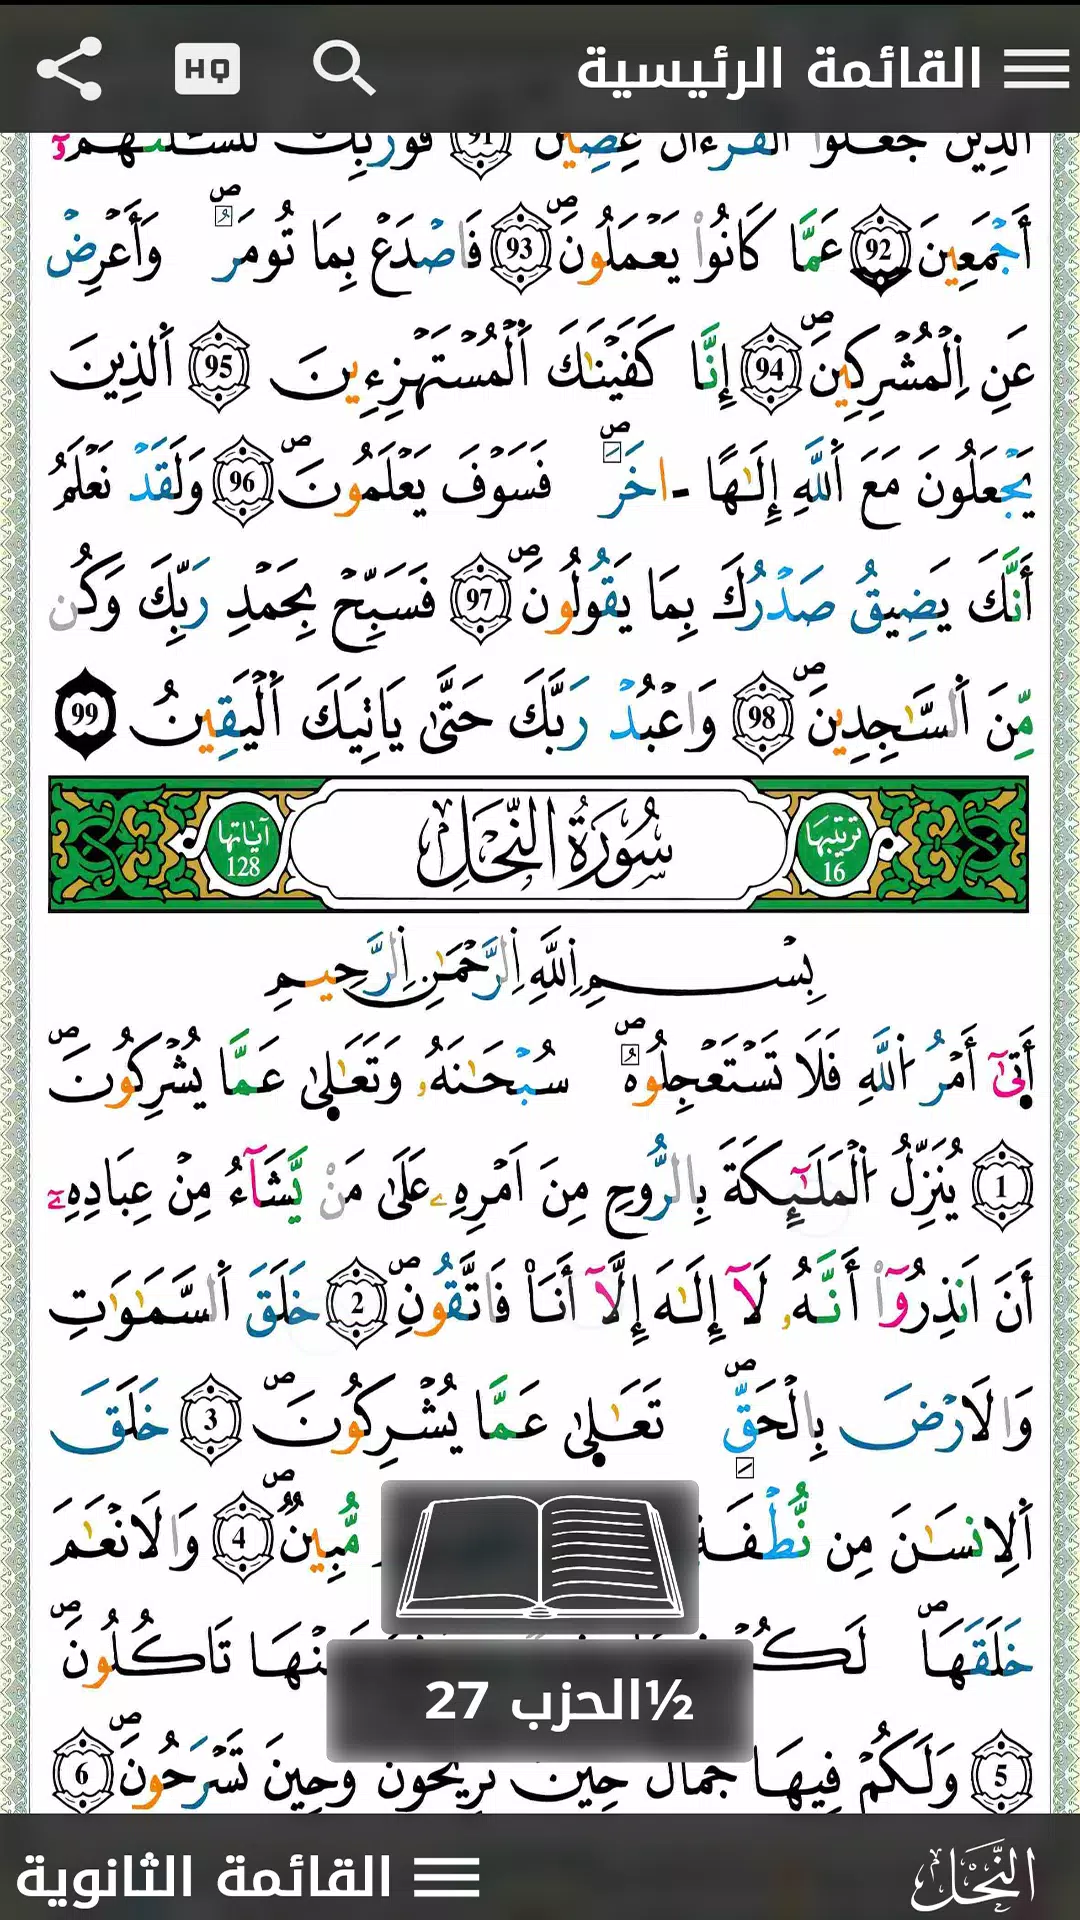 القائمة الرئيسية
HQ
اَلذِينَ جَعَلُواْ اُلْقُرْءَانَ عِضِينَ 91 فَوَرَبِّكَ لَنَسْـَٔلَنَّهُمُۥٓ
أَجْمَعِينَ 92 عَمَّا كَانُواْ يَعْمَلُونَۖ 93 فَاصْدَعْ بِمَا تُومَرُۖ وَأَعْرِضْ
عَنِ اِلْمُشْرِكِينَۖ 94 إِنَّا كَفَيْنَٰكَ اَلْمُسْتَهْزِءِينَ 95 اَلذِينَ
يَجْعَلُونَ مَعَ اَللَّهِ إِلَٰهاً ـ اخَرَۖ فَسَوْفَ يَعْلَمُونَۖ 96 وَلَقَدْ نَعْلَمُ
أَنَّكَ يَضِيقُ صَدْرُكَ بِمَا يَقُولُونَۖ 97 فَسَبِّحْ بِحَمْدِ رَبِّكَ وَكُن
مِّنَ اَلسَّٰجِدِينَۖ 98 وَاعْبُدْ رَبَّكَ حَتَّىٰ يَاتِيَكَ اَلْيَقِينُ 99
ترتيبها 16 سُورَةُ النَّحْلِ آياتها 128
بِسْمِ اِللَّهِ اِلرَّحْمَٰنِ اِلرَّحِيمِ
أَتَىٰٓ أَمْرُ اُللَّهِ فَلَا تَسْتَعْجِلُوهُۖ سُبْحَٰنَهُۥ وَتَعَٰلَىٰ عَمَّا يُشْرِكُونَۖ
1 يُنَزِّلُ اُلْمَلَٰٓئِكَةَ بِالرُّوحِ مِنَ اَمْرِهِۦ عَلَىٰ مَنْ يَّشَآءُ مِنْ عِبَادِهِۦٓ
أَنَ اَنذِرُوٓاْ أَنَّهُۥ لَآ إِلَٰهَ إِلَّآ أَنَا۠ فَاتَّقُونِۖ 2 خَلَقَ اَلسَّمَٰوَٰتِ
وَالَارْضَ بِالْحَقِّۖ تَعَٰلَىٰ عَمَّا يُشْرِكُونَۖ 3 خَلَقَ
اَلِانسَٰنَ مِن نُّطْفَةٖ مُّبِينٞۖ 4 وَالَانْعَٰمَ
خَلَقَهَاۖ لَكُمْ تَاكُلُونَۖ
5 وَلَكُمْ فِيهَا جَمَالٌ حِينَ تُرِيحُونَ وَحِينَ تَسْرَحُونَۖ 6
½الحزب 27
النَّحْل
القائمة الثانوية